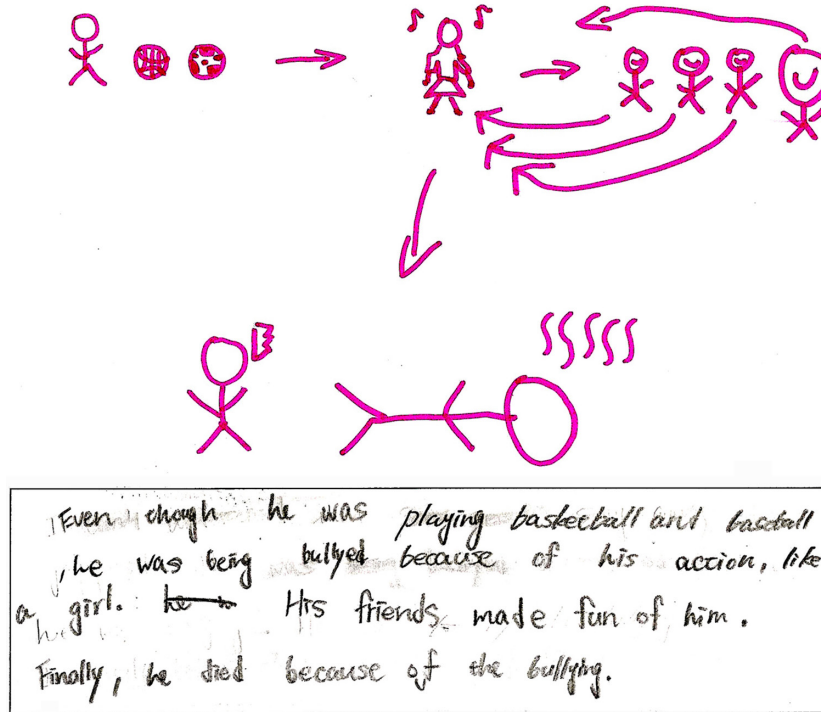 Even though he was playing basketball and baseball
, he was being bullyed because of his action, like
a girl. His friends made fun of him.
Finally, he died because of the bullying.